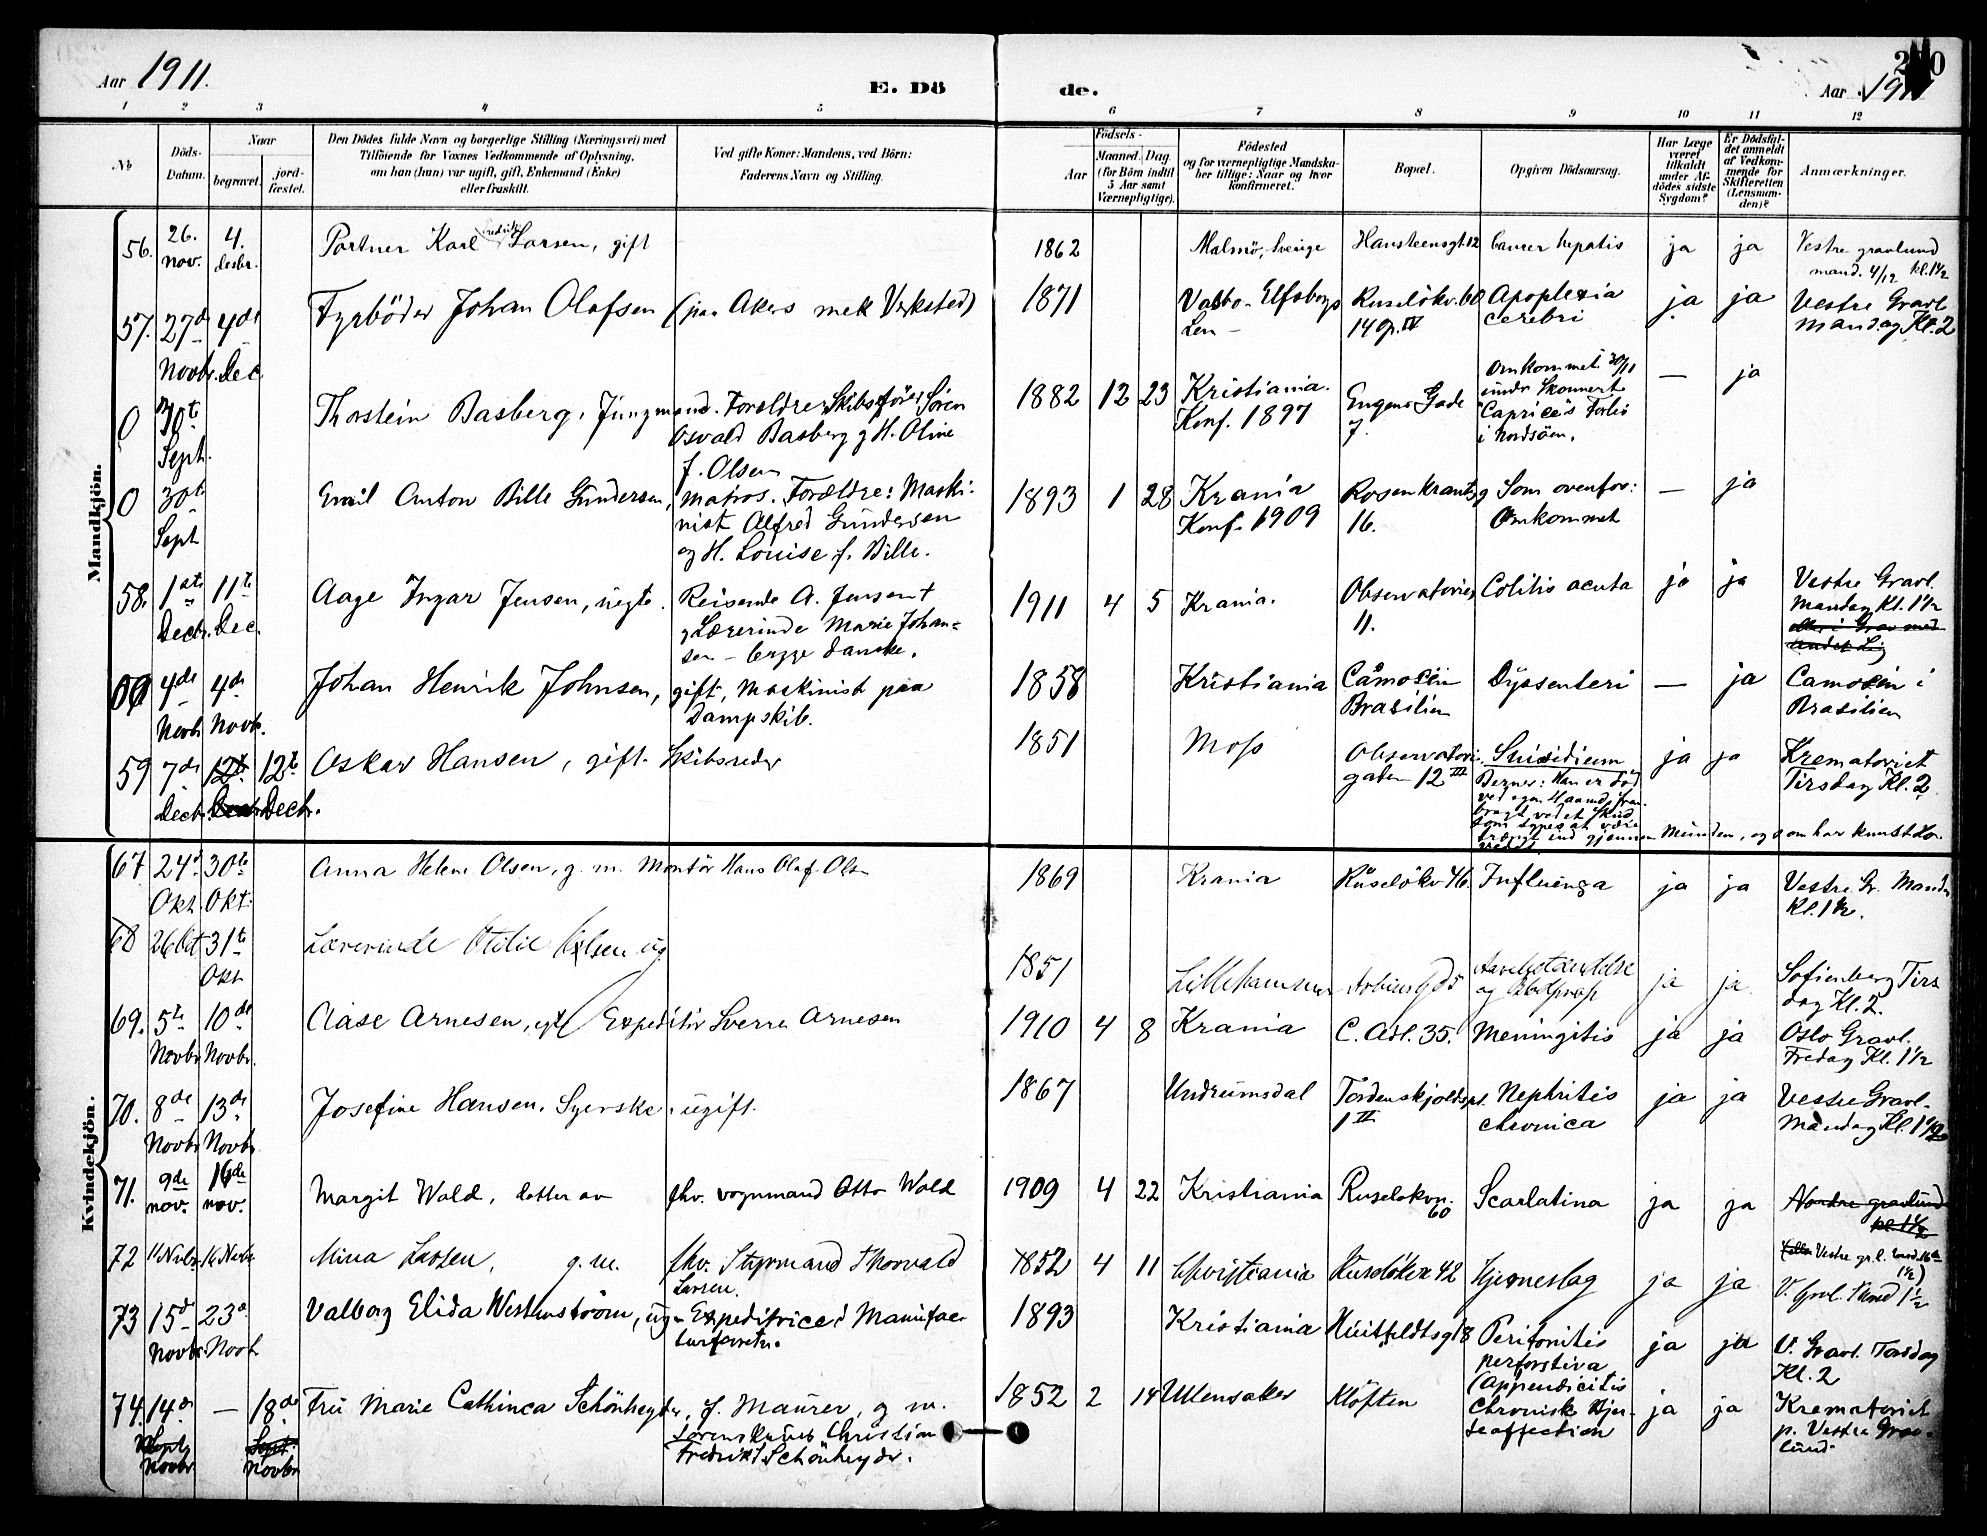 Aar 1911.
E. Dö
de.
Aar 1911
1 2 3 4 5 6 7 8 9 10 11 12
No
Döds-Datum.
Naar
begravet.
jordfæstet.
Den Dödes fulde Navn og borgerlige Stilling (Næringsvei) med
Tilföiende for Voxnes Vedkommende af Oplysning,
om han (hun) var ugift, gift, Enkemand (Enke)
eller fraskilt.
Ved gifte Koner: Mandens, ved Börn:
Faderens Navn og Stilling.
Födsels-
Aar
Maaned. Dag
(for Börn indtil
5 Aar samt
Værnepligtige).
Födested
og for værnepligtige Mandska-
ber tillige: Naar og hvor
konfirmeret.
Bopæl.
Opgiven Dödsaarsag.
Har Læge
været
tilkaldt
under Af-
dödes sidste
Sygdom?
Er Dödsfal-
det anmeldt
af Vedkom-
mende for
Skifteretten
(Lensman-
den)?
Anmærkninger.
Mandkjön.
56. 26. nov. 4. desbr. Portner Karl Fredrik Larsen, gift 1862 Malmö, Sverige Hansteensgt 12 Cancer hepatis ja ja Vestre gravlund
mand. 4/12 kl. 1½
57. 27de Novbr. 4de Dec. Fyrböder Johan Olafsen (paa Akers mek Verksted) 1871 Valbo - Elfsborgs Len - Ruselökv. 60 14 Op. IV Apoplexia cerebri ja ja Vestre Gravl.
Mandag Kl. 2
0 30te Sept. Thorstein Basberg, Jungmand. Forældre: Skibsförer Sören
Osvald Basberg og H. Oline
f. Olsen 1882 12 23 Kristiania. Konf. 1897 Eugenes Gade 7. Omkommet 30/11
under Skonnert
"Caprice"s Forlis
i Nordsöen. — ja
0 30te Sept Emil Anton Bille Gundersen, Matros. Forældre: Maski-
nist Alfred Gundersen
og H. Louise f. Bille. 1893 1 28 Krania Konf. 1909 Rosenkrantzg 16. Som ovenfor:
Omkommet — ja
58. 1ste Decbr. 11te Dec. Aage Ingar Jensen, uegte. Reisende A. Jensen +
og Lærerinde Marie Johan=
sen - begge danske. 1911 4 5 Krania. Observatorieg 11. Colitis acuta ja ja Vestre Gravl.
Mandag Kl. 1½
eller i Grav med
andet Lig
00 4de Novbr 4de Novb. Johan Henrik Johnsen, gift, Maskinist paa
Dampskib. 1858 Kristiania Camosin Brasilien Dyssenteri — ja Camosin i
Brasilien
59 7de Decbr. 12te Decbr 12te Decbr. Oskar Hansen, gift. Skibsreder 1851 Moss Observatorie-
gaten 12 III Suicidium
Berner: Han er död
ved egen Haand, fram-
bragt ved et Skud
som synes at være
trængt ind gjennem Munden, og som har knust Ho-
vedet ja ja Krematoriet
Tirsdag Kl. 2
Kvindekjön.
67. 24de Okt. 30te Okt. Anna Helene Olsen, g. m. Montör Hans Olaf Olsen 1869 Krania Ruselökv 46. Influenza ja ja Vestre Gr. Mandag
Kl. 1½.
68 26 Okt 31te Okt Lærerinde Otilie Olsen ug. 1851 Lillehammer Arbiensgd 5 ja ja Sofienberg Tirs
dag Kl. 2.
69. 5te Novbr 10de Novbr. Aase Arnesen, egte Expeditör Sverre Arnesen 1910 4 8 Krania C. Adl. 35. Meningitis ja ja Oslo Gravl.
Fredag Kl. 1½
70. 8de Novbr 13de Novbr. Josefine Hansen, Syerske, ugift. 1867 Undrumsdal Tordenskjoldspl. 1 II Nephritis chronica ja ja Vestre Gravl-
Mandag Kl. 1½
71. 9de nov. 16de nov. Margit Wold, datter av fhv. vognmand Otto Wold 1909 4 22 Kristiania Ruselokvn. 60 Scarlatina ja ja Nordre gravlund
kl. 1½
72 11 Nvbr. 16 Nvbr. Mina Larsen, g. m. fhv. Styrmand Thorvald
Larsen. 1852 4 11 Christiania Ruselökv 42 Hjerneslag ja ja V. Gravl. 1½
73 15de Novbr. 23de Novb. Valborg Elida Westenström, ug - Expeditrice i Manufac-
turforretn. 1893 Kristiania Huitfeldtsgt 8 Peritonitis
perforativa
(Appendicitis ja ja V. Gravl. Torsdag
Kl. 2
74. 14de Sept. Novbr — 18de Sept. Novbr Fru Marie Cathinca Schönheyder, f. Maurer, g. m.
Sorenskriver Christian
Fredrik Schönheyder. 1852 2 14 Ullensaker Klöften Chronisk Hjer-
teaffection ja ja Krematoriet
p. Vestre Grav-
lund